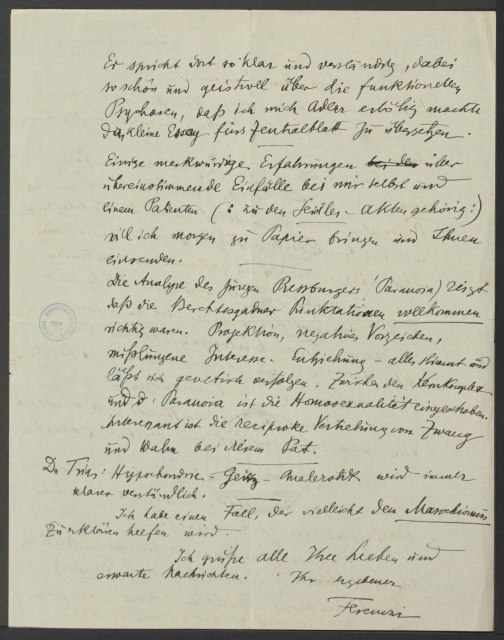 Er spricht dort so klar und verständig, dabei
so schön und geistvoll über die funktionellen
Psychosen, daß ich mich Adler erbötig machte
das kleine Essay fürs Zentralblatt zu übersetzen.
Einige merkwürdige Erfahrungen bei den über
übereinstimmende Einfälle bei mir selbst und
einem Patienten (: zu den Seidler-Akten gehörig:)
will ich morgen zu Papier bringen und Ihnen
einsenden.
Die Analyse des jungen Pressburgers (Paranoia) zeigt
daß die Berchtesgadner Punktationen vollkommen
richtig waren. Projektion, negatives Vorzeichen,
mißlungene Interesse-Entziehung - alles stimmt und
läßt sich genetisch verfolgen. Zwischen den Kernkomplex
und d. Paranoia ist die Homosexualität eingeschoben.
Interessant ist die reziproke Vertretung von Zwang
und Wahn bei diesem Pat.
Die Trias: Hypochondrie - Geiz - Analerotik wird immer
klarer verständlich.
Ich habe einen Fall, der vielleicht den Masochismus
zu erklären helfen wird.
Ich grüße alle Ihre Lieben und
erwarte Nachrichten. Ihr ergebener
Ferenczi